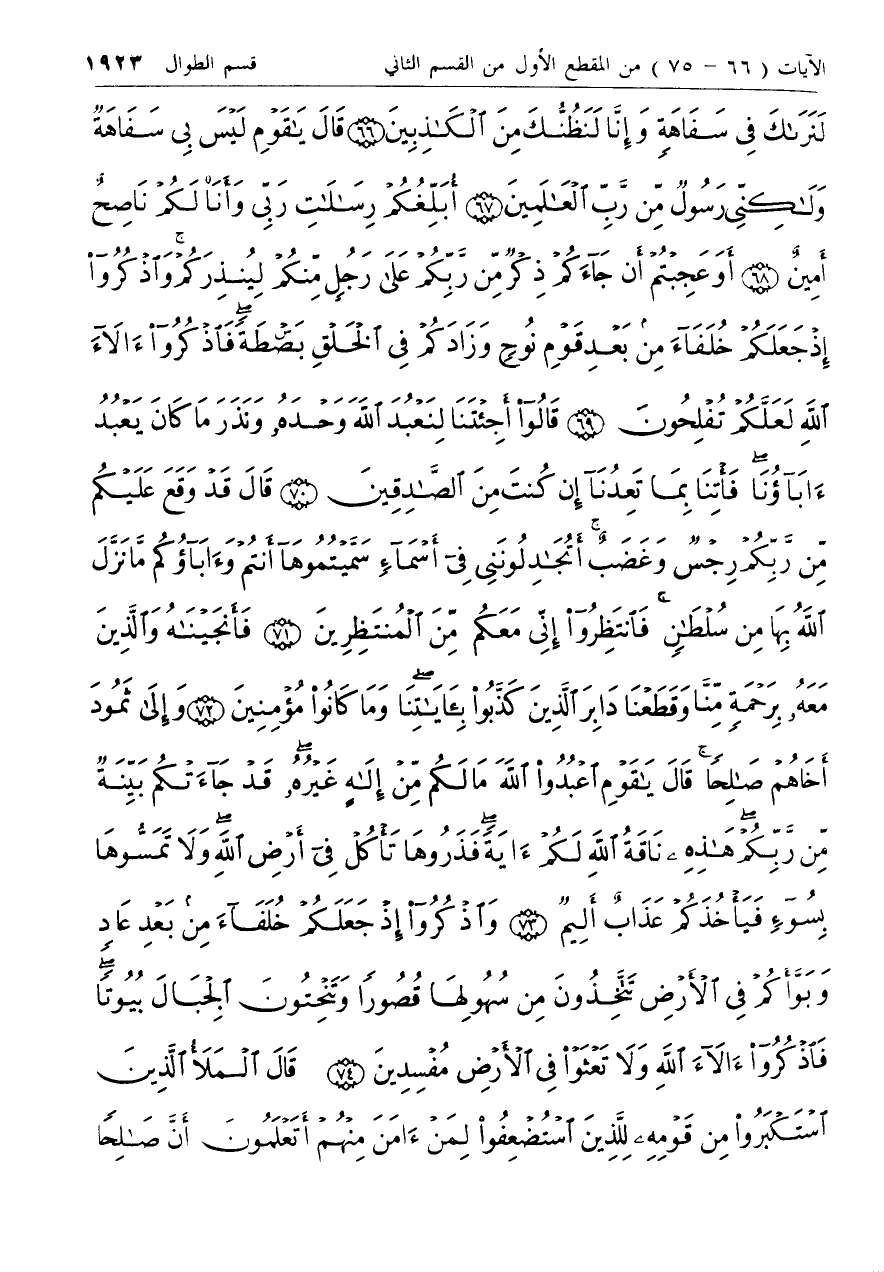 الآيات ( ٦٦ - ٧٥ ) من المقطع الأول من القسم الثاني قسم الطوال ١٩٢٣
لَنَرَىٰكَ فِى سَفَاهَةٍ وَإِنَّا لَنَظُنُّكَ مِنَ ٱلْكَـٰذِبِينَ ٦٦ قَالَ يَـٰقَوْمِ لَيْسَ بِى سَفَاهَةٌ
وَلَـٰكِنِّى رَسُولٌ مِّن رَّبِّ ٱلْعَـٰلَمِينَ ٦٧ أُبَلِّغُكُمْ رِسَـٰلَـٰتِ رَبِّى وَأَنَا۠ لَكُمْ نَاصِحٌ
أَمِينٌ ٦٨ أَوَعَجِبْتُمْ أَن جَآءَكُمْ ذِكْرٌ مِّن رَّبِّكُمْ عَلَىٰ رَجُلٍ مِّنكُمْ لِيُنذِرَكُمْ ۚ وَٱذْكُرُوٓا۟
إِذْ جَعَلَكُمْ خُلَفَآءَ مِنۢ بَعْدِ قَوْمِ نُوحٍ وَزَادَكُمْ فِى ٱلْخَلْقِ بَصْۜطَةً ۖ فَٱذْكُرُوٓا۟ ءَالَآءَ
ٱللَّهِ لَعَلَّكُمْ تُفْلِحُونَ ٦٩ قَالُوٓا۟ أَجِئْتَنَا لِنَعْبُدَ ٱللَّهَ وَحْدَهُۥ وَنَذَرَ مَا كَانَ يَعْبُدُ
ءَابَآؤُنَا ۖ فَأْتِنَا بِمَا تَعِدُنَآ إِن كُنتَ مِنَ ٱلصَّـٰدِقِينَ ٧٠ قَالَ قَدْ وَقَعَ عَلَيْكُم
مِّن رَّبِّكُمْ رِجْسٌ وَغَضَبٌ ۖ أَتُجَـٰدِلُونَنِى فِىٓ أَسْمَآءٍ سَمَّيْتُمُوهَآ أَنتُمْ وَءَابَآؤُكُم مَّا نَزَّلَ
ٱللَّهُ بِهَا مِن سُلْطَـٰنٍ ۚ فَٱنتَظِرُوٓا۟ إِنِّى مَعَكُم مِّنَ ٱلْمُنتَظِرِينَ ٧١ فَأَنجَيْنَـٰهُ وَٱلَّذِينَ
مَعَهُۥ بِرَحْمَةٍ مِّنَّا وَقَطَعْنَا دَابِرَ ٱلَّذِينَ كَذَّبُوا۟ بِـَٔايَـٰتِنَا ۖ وَمَا كَانُوا۟ مُؤْمِنِينَ ٧٢ وَإِلَىٰ ثَمُودَ
أَخَاهُمْ صَـٰلِحًا ۚ قَالَ يَـٰقَوْمِ ٱعْبُدُوا۟ ٱللَّهَ مَا لَكُم مِّنْ إِلَـٰهٍ غَيْرُهُۥ ۖ قَدْ جَآءَتْكُم بَيِّنَةٌ
مِّن رَّبِّكُمْ ۖ هَـٰذِهِۦ نَاقَةُ ٱللَّهِ لَكُمْ ءَايَةً ۖ فَذَرُوهَا تَأْكُلْ فِىٓ أَرْضِ ٱللَّهِ ۖ وَلَا تَمَسُّوهَا
بِسُوٓءٍ فَيَأْخُذَكُمْ عَذَابٌ أَلِيمٌ ٧٣ وَٱذْكُرُوٓا۟ إِذْ جَعَلَكُمْ خُلَفَآءَ مِنۢ بَعْدِ عَادٍ
وَبَوَّأَكُمْ فِى ٱلْأَرْضِ تَتَّخِذُونَ مِن سُهُولِهَا قُصُورًا وَتَنْحِتُونَ ٱلْجِبَالَ بُيُوتًا ۖ
فَٱذْكُرُوٓا۟ ءَالَآءَ ٱللَّهِ وَلَا تَعْثَوْا۟ فِى ٱلْأَرْضِ مُفْسِدِينَ ٧٤ قَالَ ٱلْمَلَأُ ٱلَّذِينَ
ٱسْتَكْبَرُوا۟ مِن قَوْمِهِۦ لِلَّذِينَ ٱسْتُضْعِفُوا۟ لِمَنْ ءَامَنَ مِنْهُمْ أَتَعْلَمُونَ أَنَّ صَـٰلِحًا